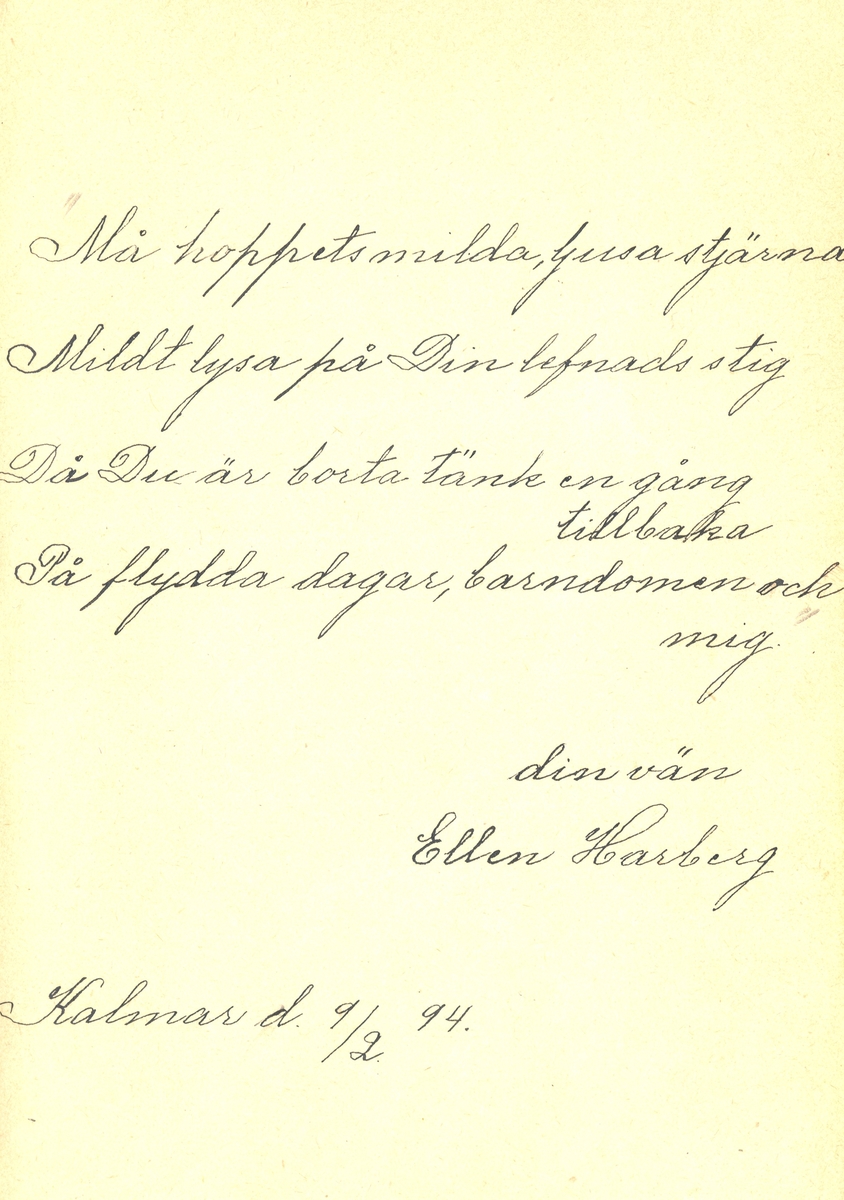 Må hoppets milda, ljusa stjärna
Mildt lysa på Din lefnads stig
Då Du är borta tänk en gång
tillbaka
På flydda dagar, barndomen och
mig.
din vän
Ellen Harberg
Kalmar d. 9/2 94.